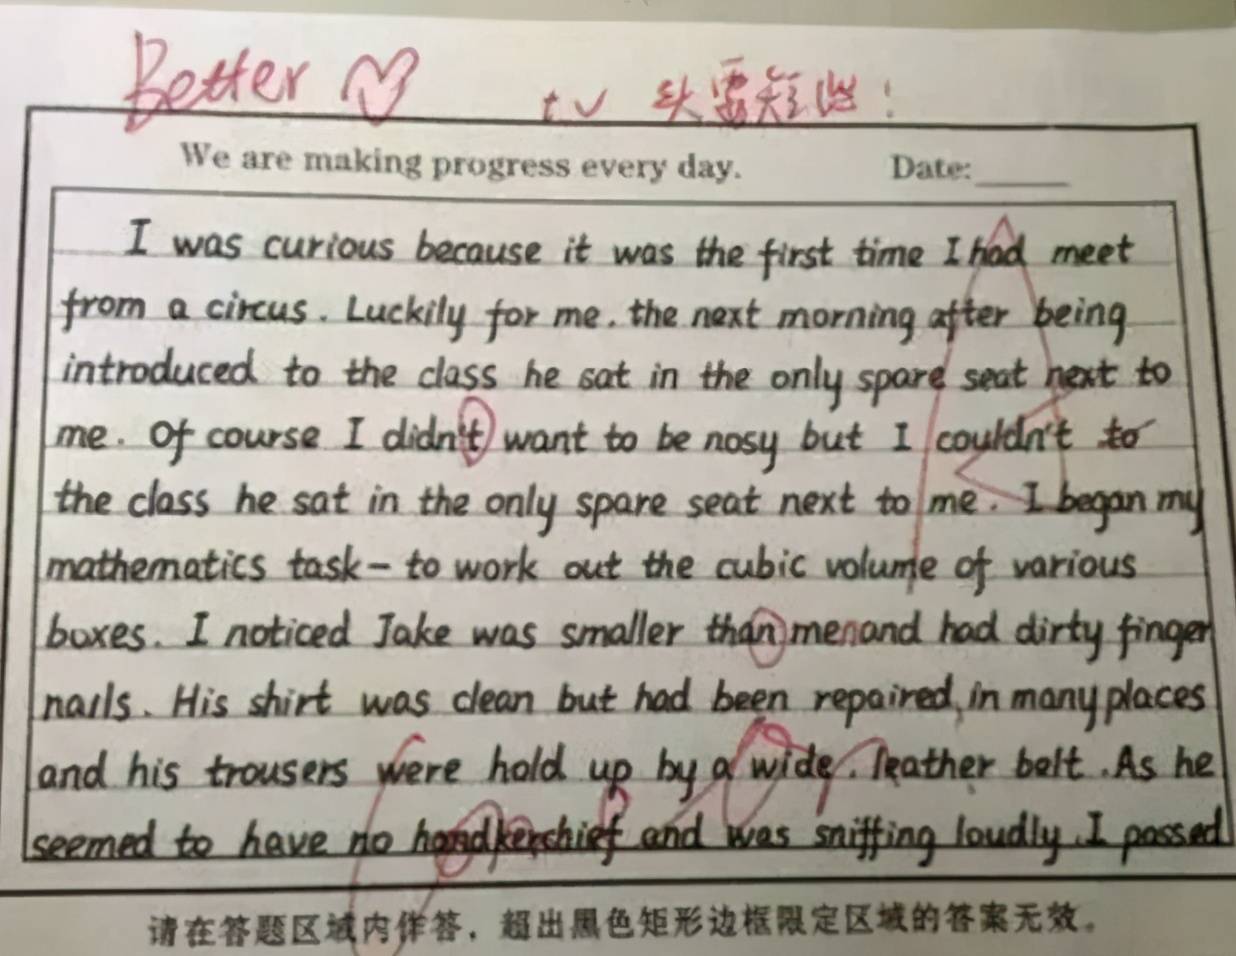 Better
t v 头要短些!
We are making progress every day. Date:
I was curious because it was the first time I had meet
from a circus. Luckily for me. the next morning after being
introduced to the class he sat in the only spare seat next to
me. Of course I didn't want to be nosy but I couldn't to
the class he sat in the only spare seat next to me. I began my
mathematics task - to work out the cubic volume of various
boxes. I noticed Jake was smaller than menand had dirty finger
nails. His shirt was clean but had been repaired, in many places
and his trousers were hold up by a wide, leather belt. As he
seemed to have no handkerchief and was sniffing loudly. I passed
请在答题区域内作答,超出黑色矩形边框限定区域的答案无效。